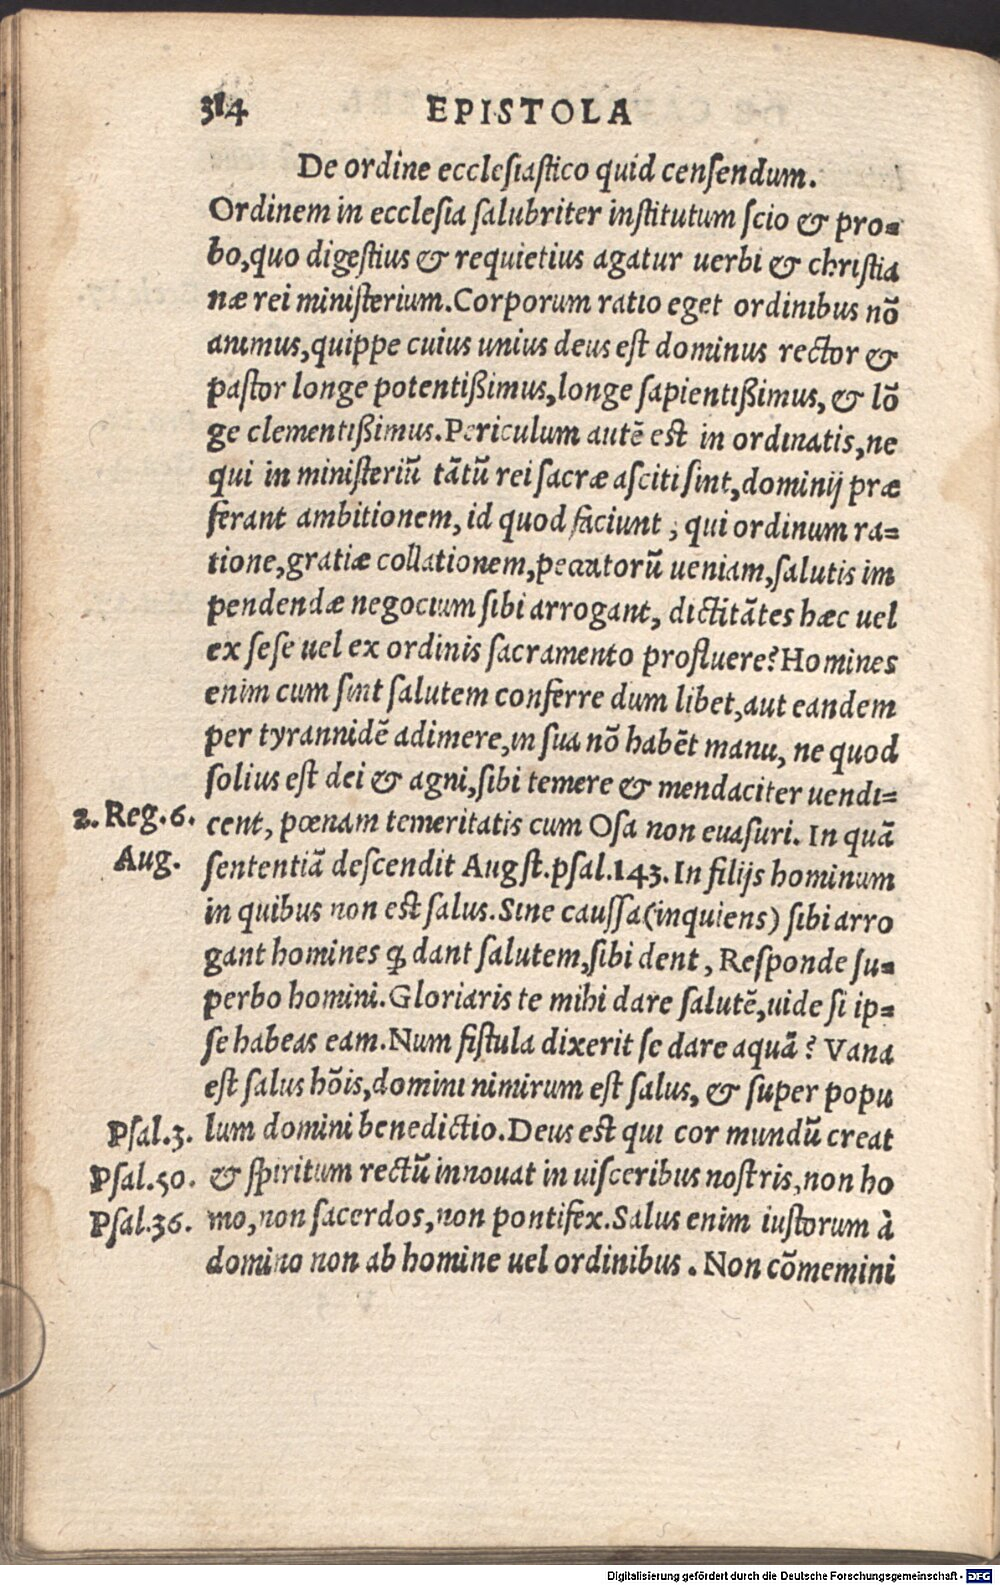 314 EPISTOLA
De ordine ecclesiastico quid censendum.
Ordinem in ecclesia salubriter institutum scio & pro=
bo,quo digestius & requietius agatur uerbi & christia
næ rei ministerium.Corporum ratio eget ordinibus nō
animus,quippe cuius unius deus est dominus rector &
pastor longe potentißimus,longe sapientißimus,& lō
ge clementißimus.Periculum autē est in ordinatis,ne
qui in ministeriū tātū rei sacræ asciti sint,dominij præ
ferant ambitionem, id quod faciunt , qui ordinum ra=
tione,gratiæ collationem,peccatorū ueniam,salutis im
pendendæ negocium sibi arrogant, dictitātes hæc uel
ex sese uel ex ordinis sacramento profluere?Homines
enim cum sint salutem conferre dum libet,aut eandem
per tyrannidē adimere,in sua nō habēt manu, ne quod
solius est dei & agni,sibi temere & mendaciter uendi=
2. Reg.6. cent, pœnam temeritatis cum Osa non euasuri. In quā
Aug. sententiā descendit August.psal.143.In filijs hominum
in quibus non est salus.Sine caussa(inquiens) sibi arro
gant homines ꝙ dant salutem,sibi dent, Responde su=
perbo homini.Gloriaris te mihi dare salutē,uide si ip=
se habeas eam.Num fistula dixerit se dare aquā? Vana
est salus hōis,domini nimirum est salus, & super popu
Psal.3. lum domini benedictio.Deus est qui cor mundū creat
Psal.50. & spiritum rectū innouat in uisceribus nostris,non ho
Psal.36. mo,non sacerdos,non pontifex.Salus enim iustorum à
domino non ab homine uel ordinibus . Non cōmemini
Digitalisierung gefördert durch die Deutsche Forschungsgemeinschaft - DFG